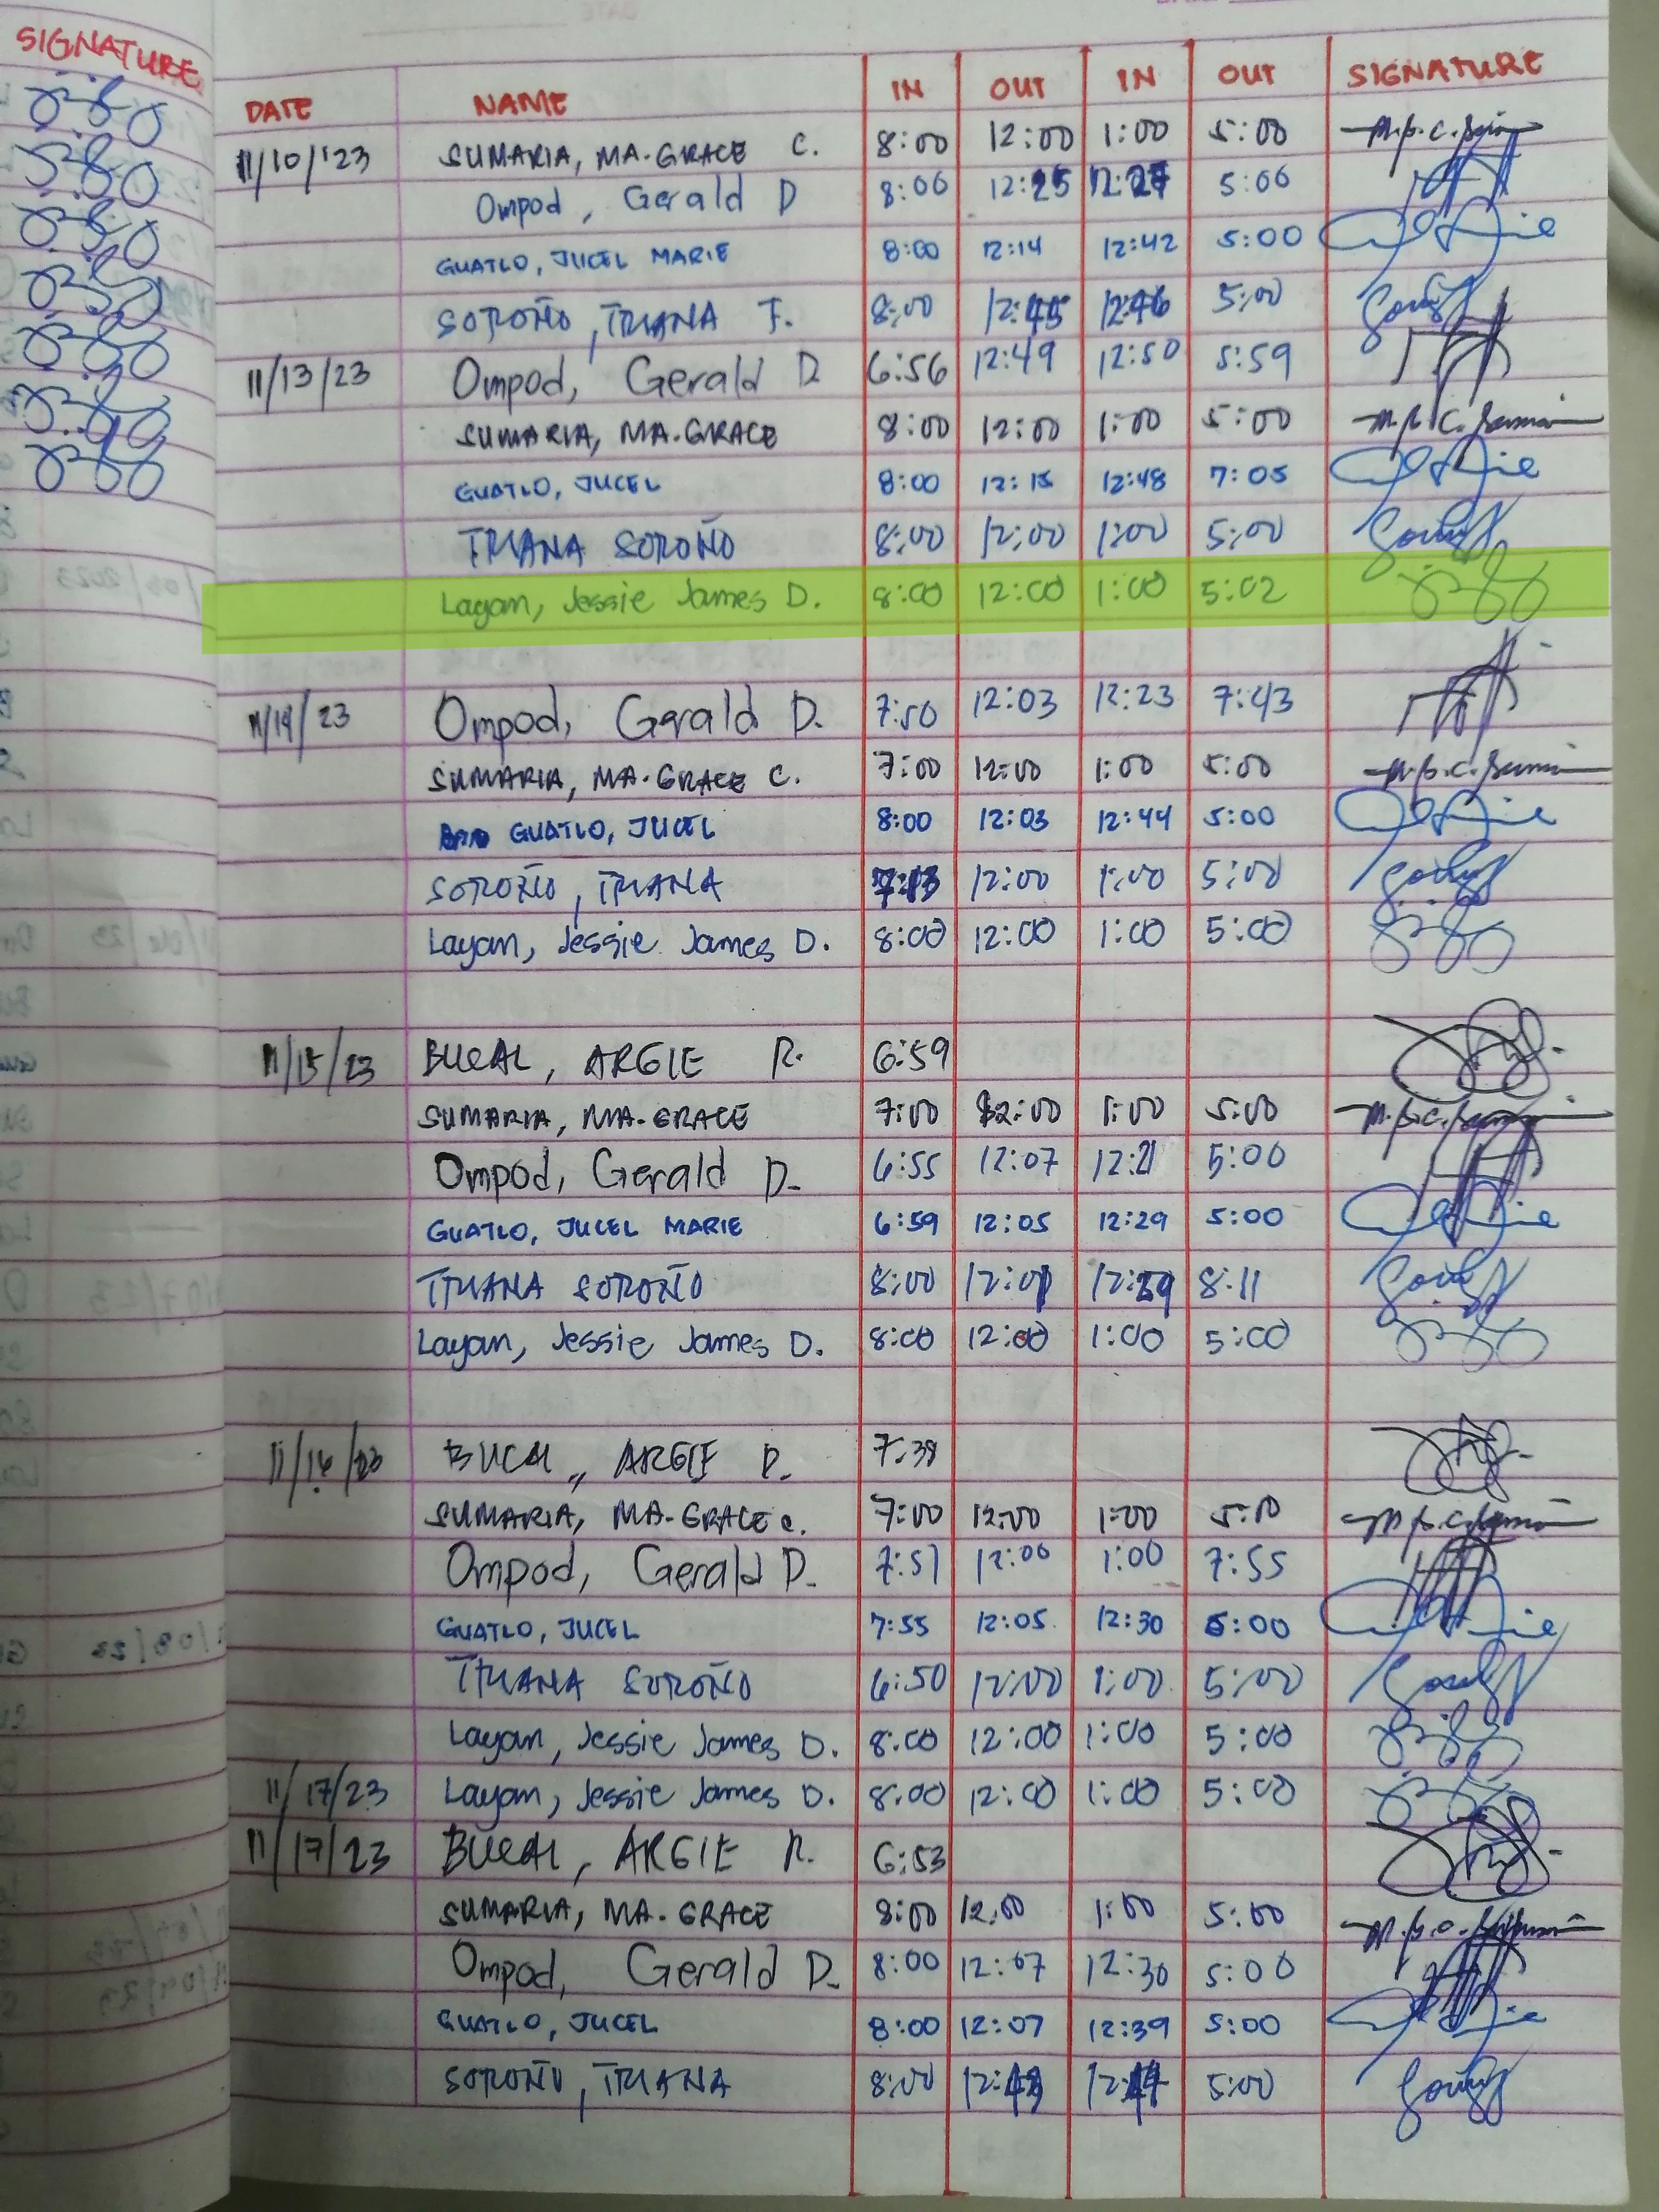 SIGNATURE
DATE NAME IN OUT IN OUT SIGNATURE
11/10/'23 SUMARIA, MA. GRACE C. 8:00 12:00 1:00 5:00
Ompod, Gerald D 8:06 12:25 12:27 5:06
GUATLO, JUCEL MARIE 8:00 12:14 12:42 5:00
SOROÑO, TRIANA F. 8:00 12:45 12:46 5:00
11/13/23 Ompod, Gerald D 6:56 12:49 12:50 5:59
SUMARIA, MA. GRACE 8:00 12:00 1:00 5:00
GUATLO, JUCEL 8:00 12:15 12:48 7:05
TRIANA SOROÑO 8:00 12:00 1:00 5:00
Layan, Jessie James D. 8:00 12:00 1:00 5:02
11/14/23 Ompod, Gerald D. 7:50 12:03 12:23 7:43
SUMARIA, MA. GRACE C. 7:00 12:00 1:00 5:00
GUATLO, JUCEL 8:00 12:03 12:44 5:00
SOROÑO, TRIANA 12:00 1:00 5:00
Layan, Jessie James D. 8:00 12:00 1:00 5:00
11/15/23 BUCAL, ARGIE R. 6:59
SUMARIA, MA. GRACE 7:00 12:00 1:00 5:00
Ompod, Gerald D. 6:55 12:07 12:21 5:00
GUATLO, JUCEL MARIE 6:59 12:05 12:29 5:00
TRIANA SOROÑO 8:00 8:11
Layan, Jessie James D. 8:00 12:00 1:00 5:00
11/16/23 BUCAL, ARGIE R. 7:38
SUMARIA, MA. GRACE C. 7:00 12:00 1:00 5:00
Ompod, Gerald D. 7:51 12:06 1:00 7:55
GUATLO, JUCEL 7:55 12:05 12:30 5:00
TRIANA SOROÑO 6:50 12:00 1:00 5:00
Layan, Jessie James D. 8:00 12:00 1:00 5:00
11/17/23 Layan, Jessie James D. 8:00 12:00 1:00 5:00
11/17/23 BUCAL, ARGIE R. 6:53
SUMARIA, MA. GRACE 8:00 12:00 1:00 5:00
Ompod, Gerald D. 8:00 12:07 12:30 5:00
GUATLO, JUCEL 8:00 12:07 12:39 5:00
SOROÑO, TRIANA 8:00 12:43 12:44 5:00